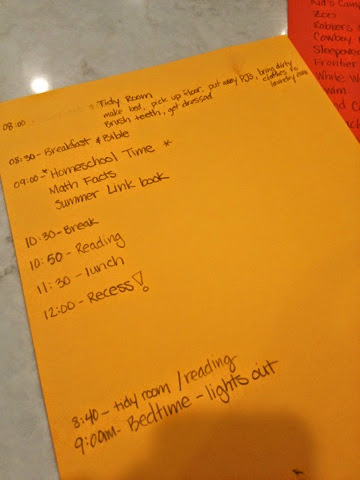 08:00 Tidy Room
make bed, pick up floor, put away PJS, bring dirty clothes to laundry room
Brush teeth, get dressed
08:30 - Breakfast & Bible
09:00 - * Homeschool Time *
Math Facts
Summer Link book
10:30 - Break
10:50 - Reading
11:30 - lunch
12:00 - Recess!
8:40 - tidy room / reading
9:00am - Bedtime - lights out
Kid's
Zoo
Robbers
Cowboy
Sleepover
Frontier
White W